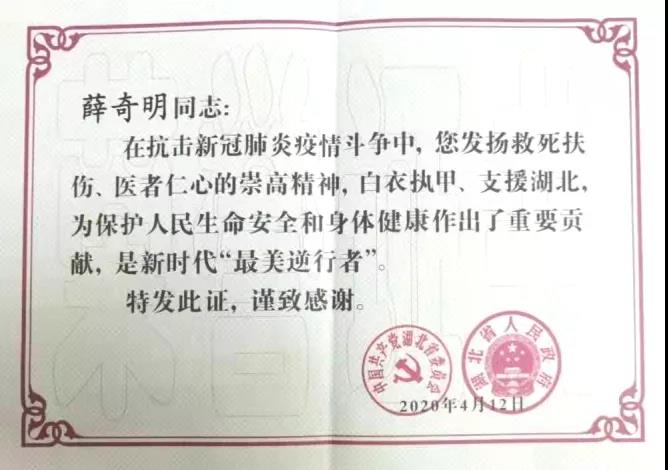 薛奇明同志：
在抗击新冠肺炎疫情斗争中，您发扬救死扶
伤、医者仁心的崇高精神，白衣执甲、支援湖北，
为保护人民生命安全和身体健康作出了重要贡
献，是新时代“最美逆行者”。
特发此证，谨致感谢。
中国共产党湖北省委员会
湖北省人民政府
2020年4月12日